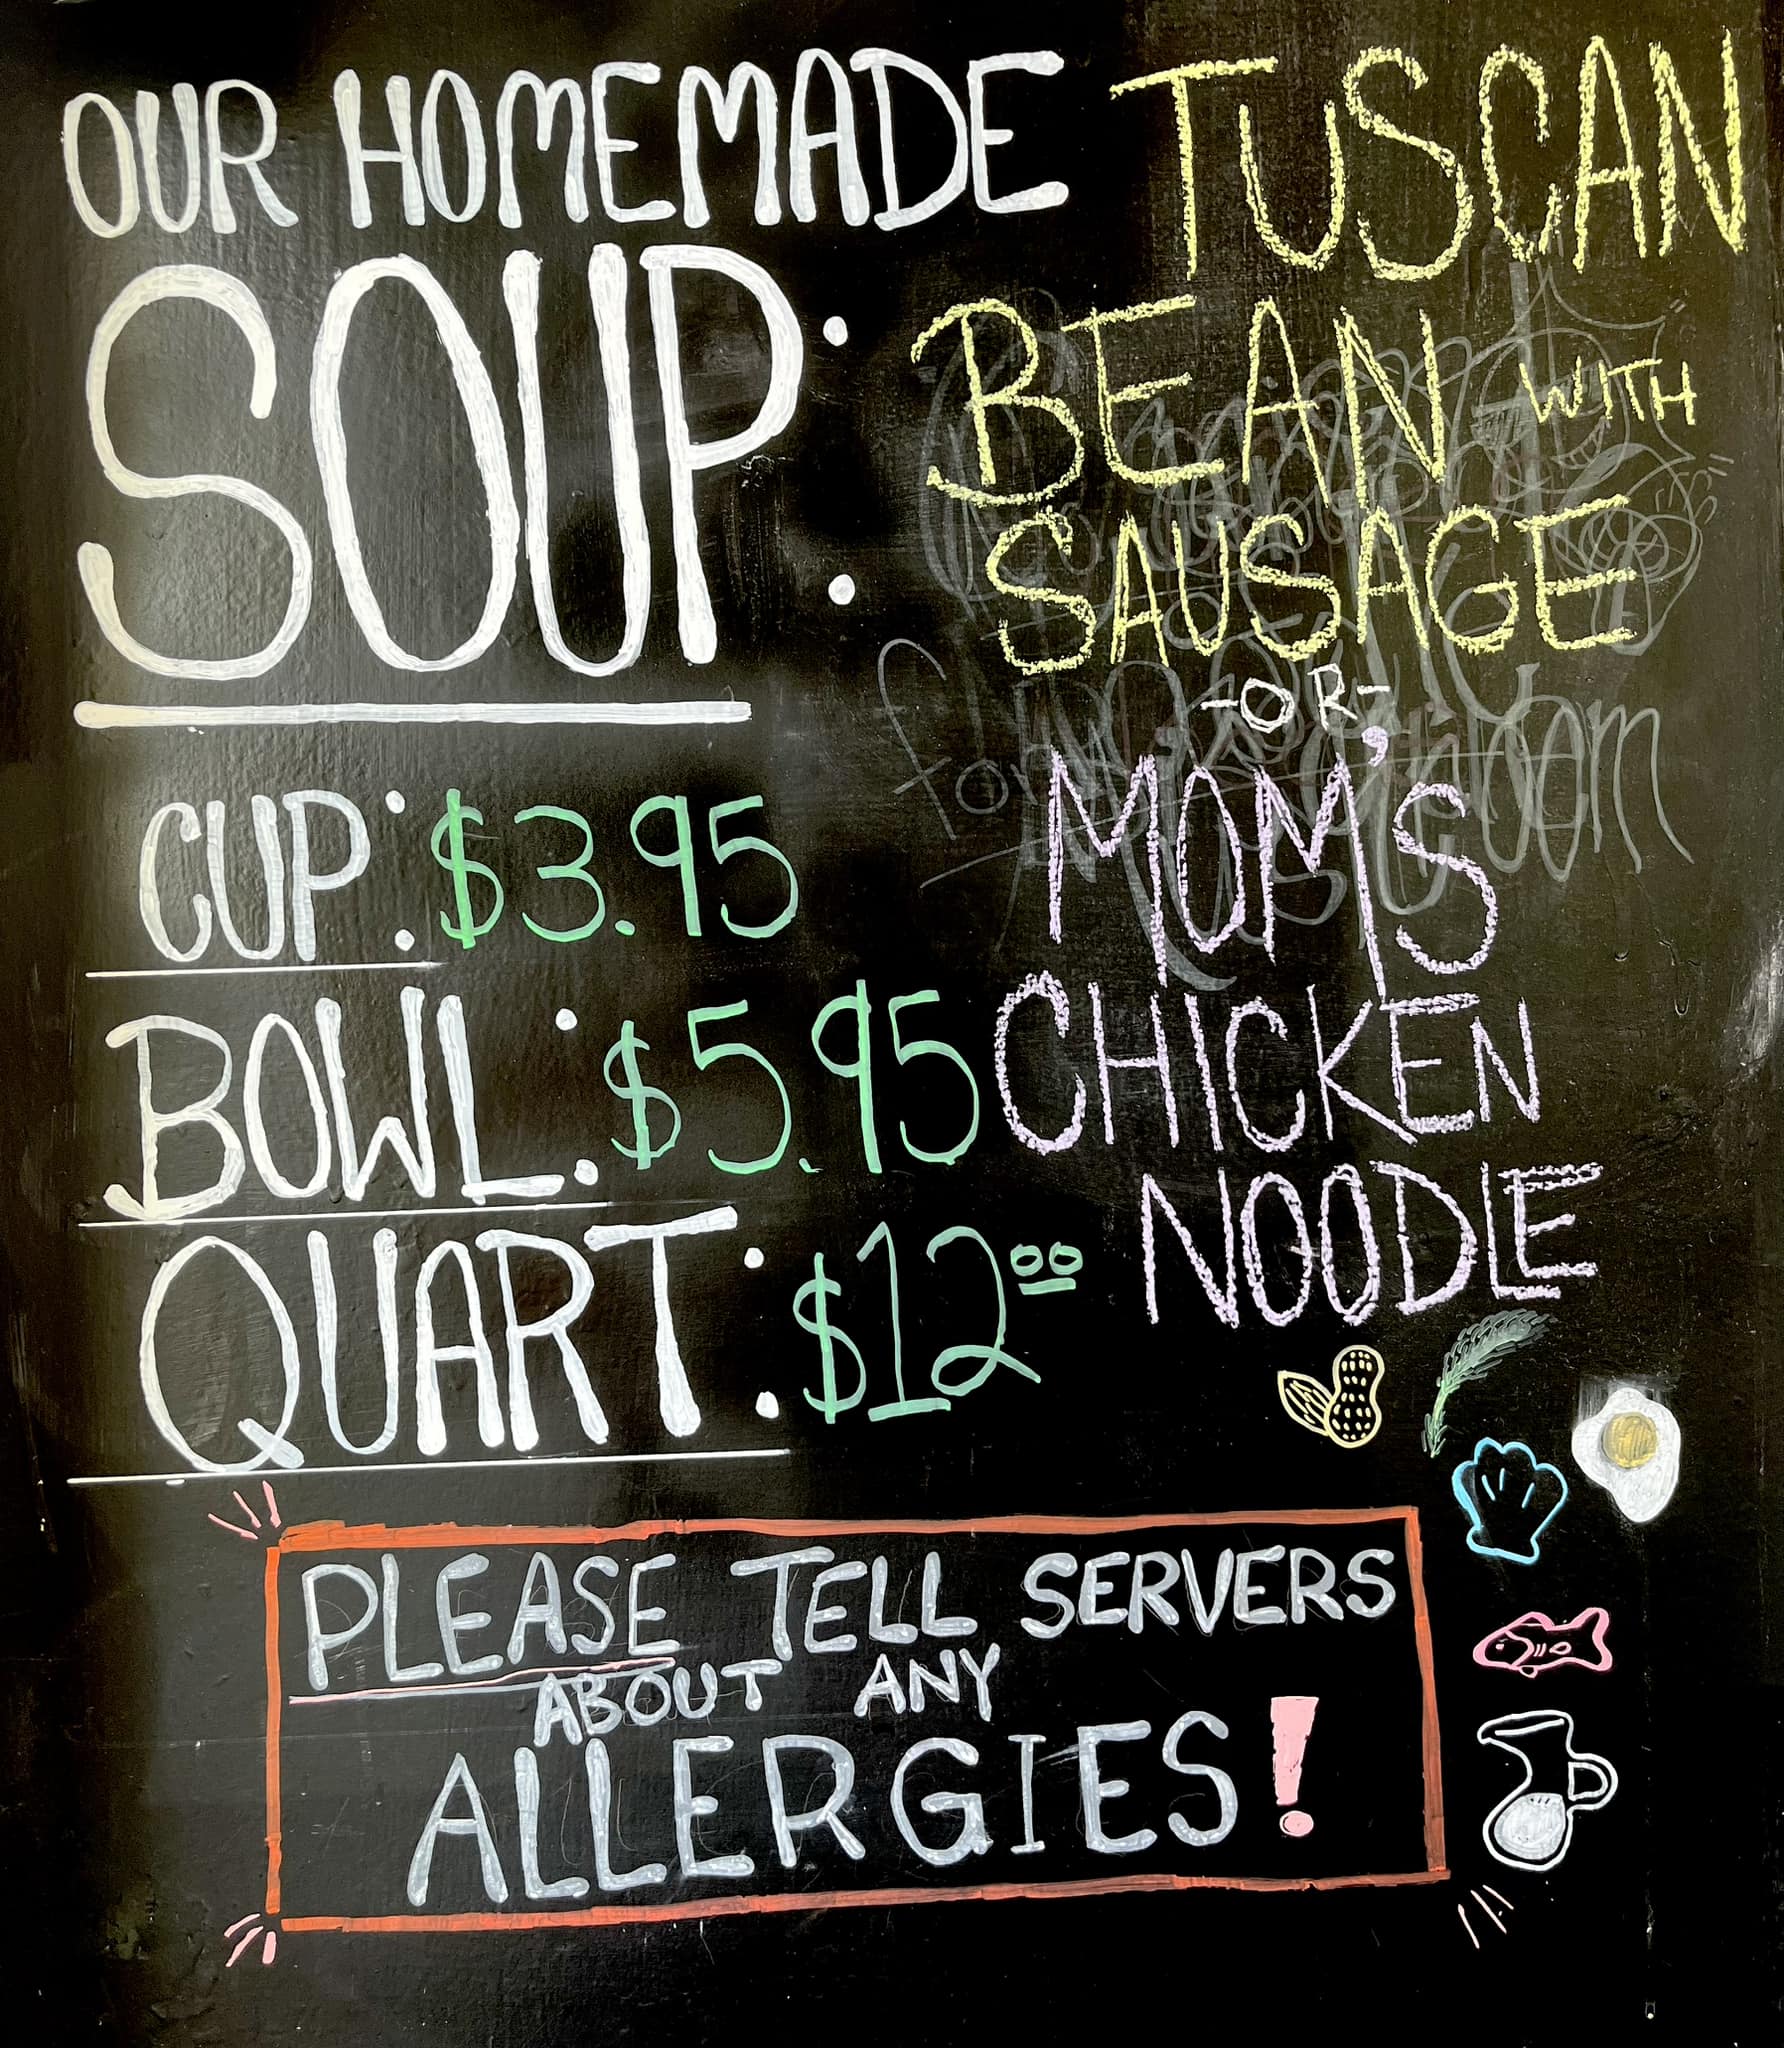 OUR HOMEMADE
SOUP:
CUP: $3.95
BOWL: $5.95
QUART: $12.00
TUSCAN
BEAN WITH
SAUSAGE
-OR-
MOM'S
CHICKEN
NOODLE
PLEASE TELL SERVERS
ABOUT ANY
ALLERGIES!